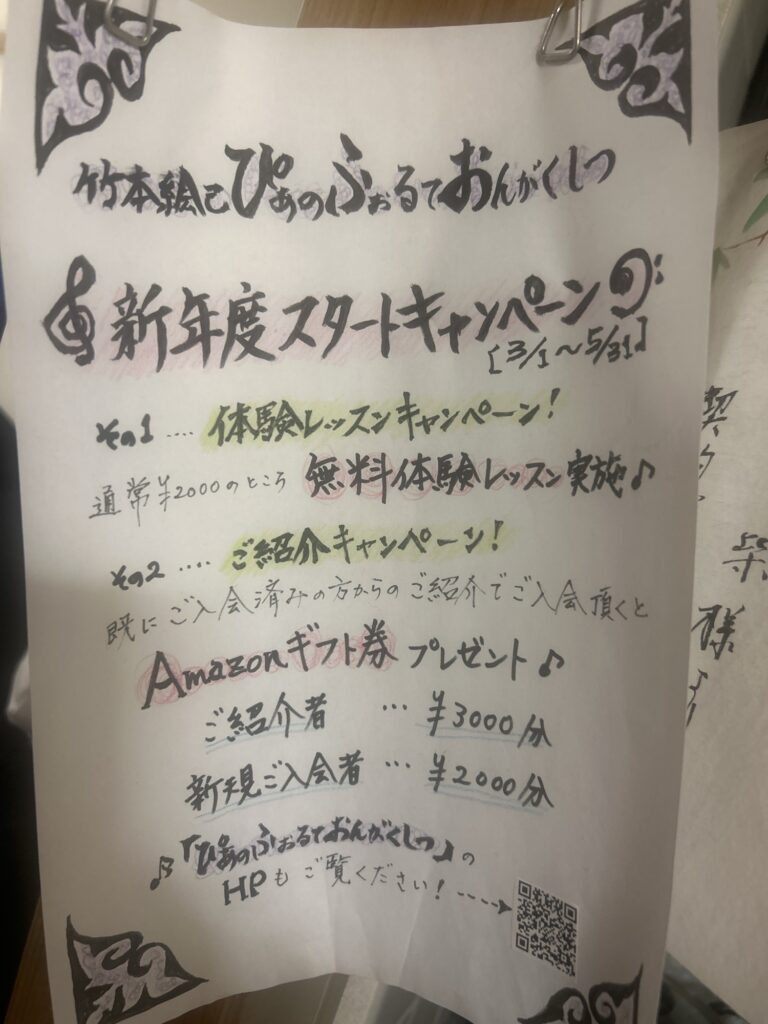 竹本絵己ぴあのふぉるておんがくしつ
新年度スタートキャンペーン
[3/1～5/31]
その1 …. 体験レッスンキャンペーン!
通常¥2000のところ 無料体験レッスン実施♪
その2 …. ご紹介キャンペーン!
既にご入会済みの方からのご紹介でご入会頂くと
Amazonギフト券 プレゼント♪
ご紹介者 … ¥3000分
新規ご入会者 … ¥2000分
♬「ぴあのふぉるておんがくしつ」の
HPもご覧ください!
様より